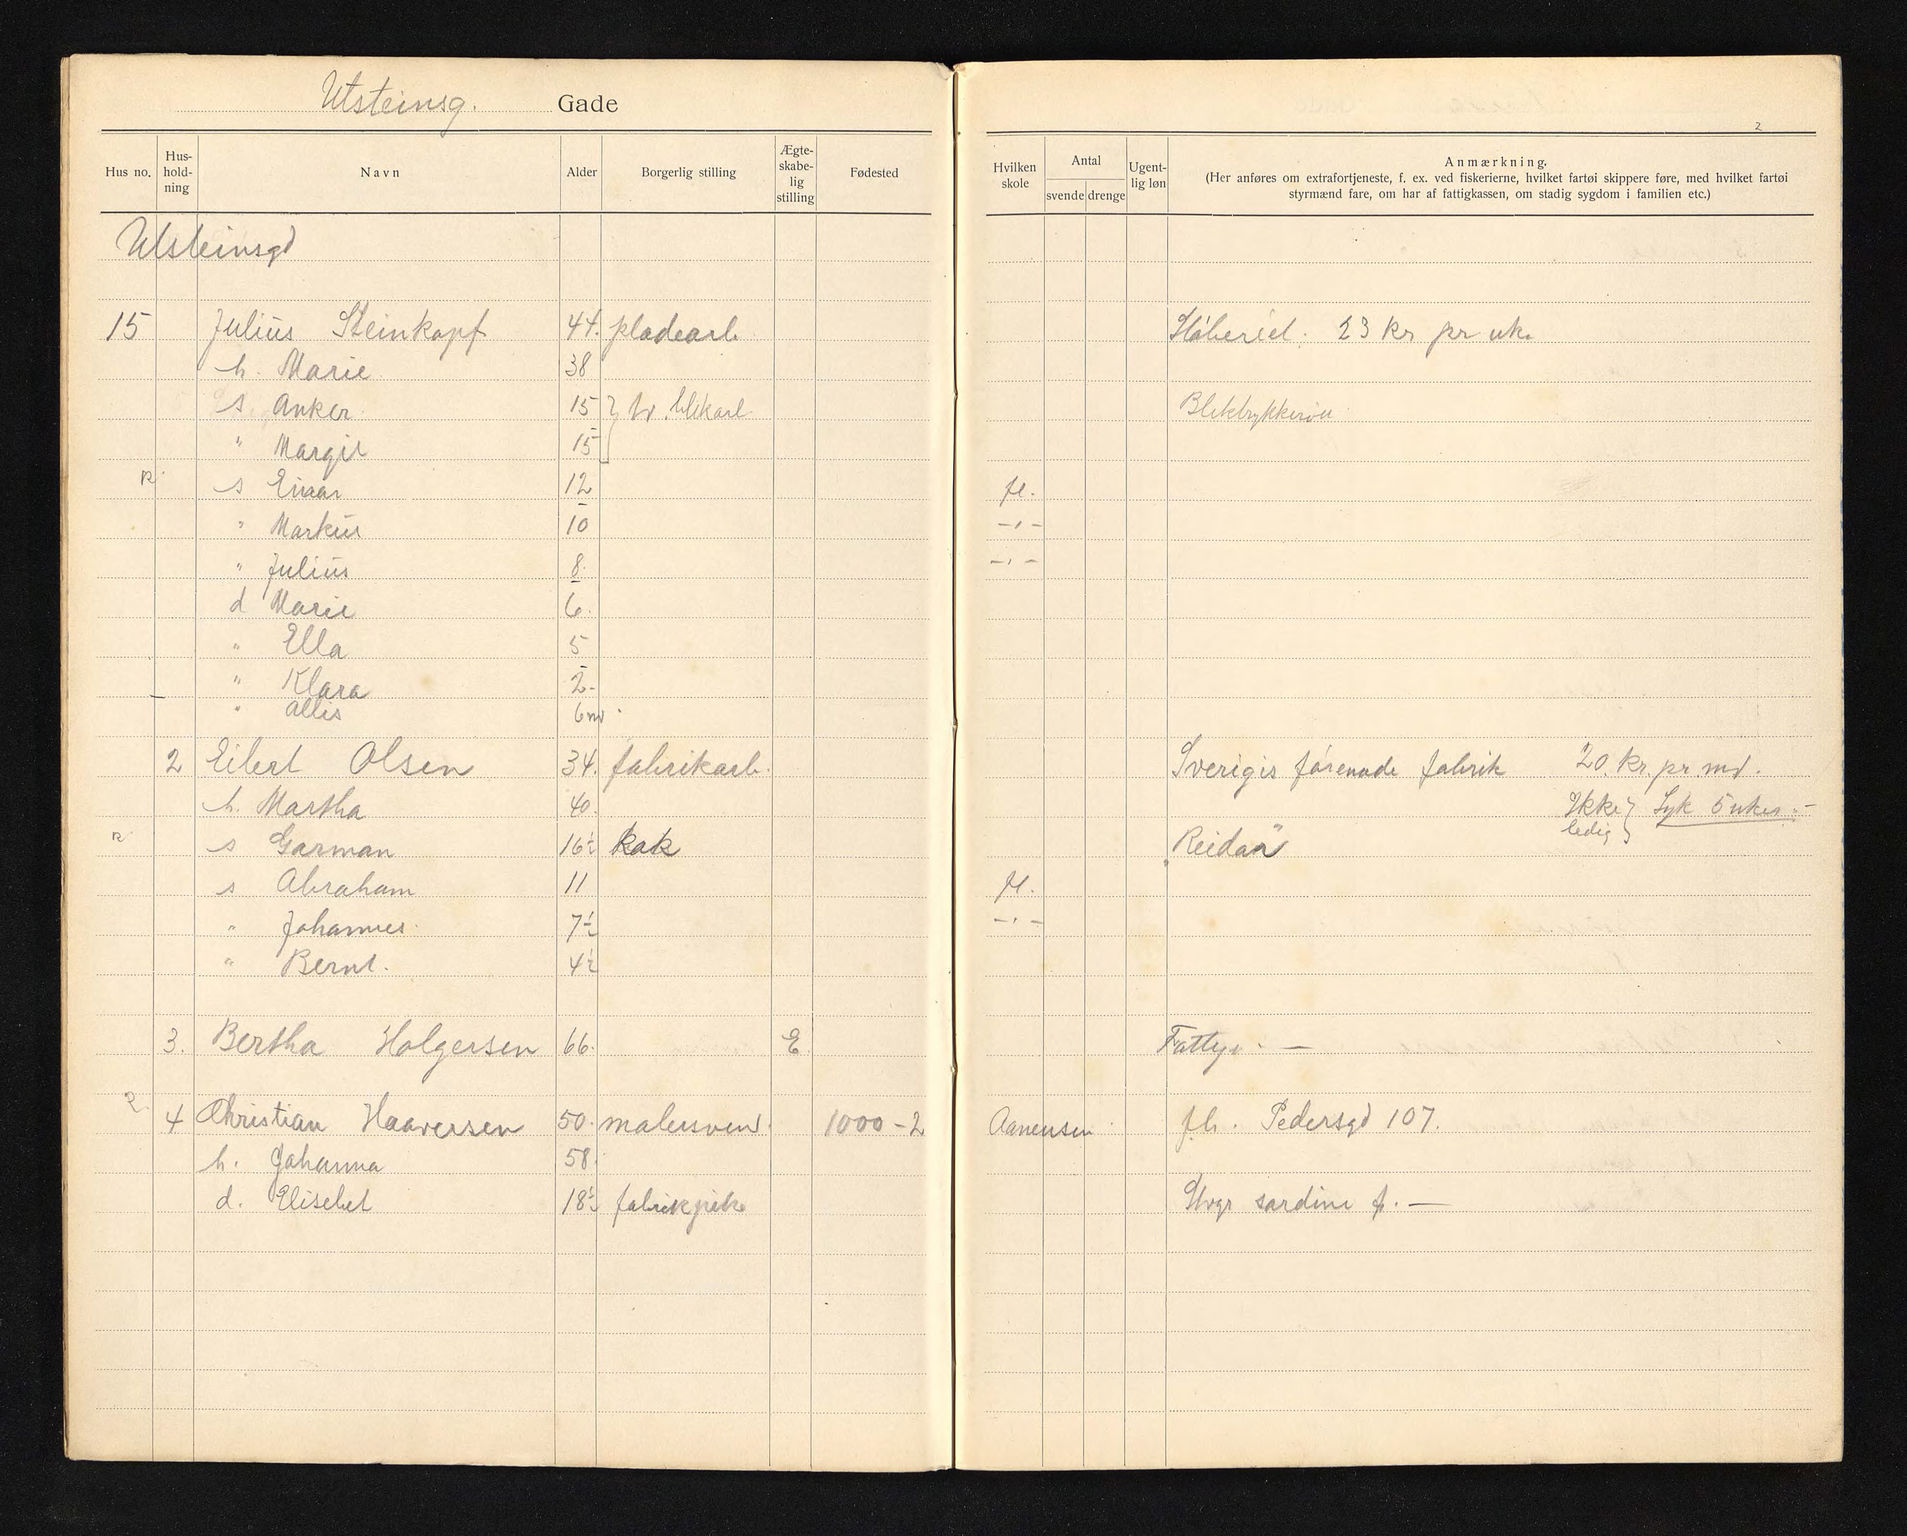 Utsteinsg. Gade
Hus no. Hus-hold-ning Navn Alder Borgerlig stilling Ægte-skabe-lig stilling Fødested
Utsteinsgd
15 Julius Steinkopf 44. pladearb.
h. Marie 38
s Anker 15 } tv. blikarb
" Margit 15
R s Einar 12
" Markus 10
" Julius 8.
d Marie 6.
" Ella 5
" Klara 2-
" Allis 6 md.
2 Eilert Olsen 34. fabrikarb.
h. Martha 40.
R s Garman 16½ kok
s Abraham 11
" Johannes 7½
" Bernt. 4½
3. Bertha Holgersen 66. E.
R. 4 Christian Haaversen 50. malersvend. 1000-2
h. Johanna 58.
d. Elisebet 18½ fabrikpike
2
Hvilken skole Antal svende drenge Ugent-lig løn Anmærkning.
(Her anføres om extrafortjeneste, f. ex. ved fiskerierne, hvilket fartøi skippere føre, med hvilket fartøi
styrmænd fare, om har af fattigkassen, om stadig sygdom i familien etc.)
Støberiet. 23 kr pr uk.
Bliktrykkeriet
fl.
-"-
-"-
Sverigis forenade fabrik 20. kr. pr. md.
Ikke ledig } Syk 5 uker. -
"Reidar"
fl.
-"-
Fattigv. —
Aanensen fh. Pedersgd 107.
Stvgr sardine f. —